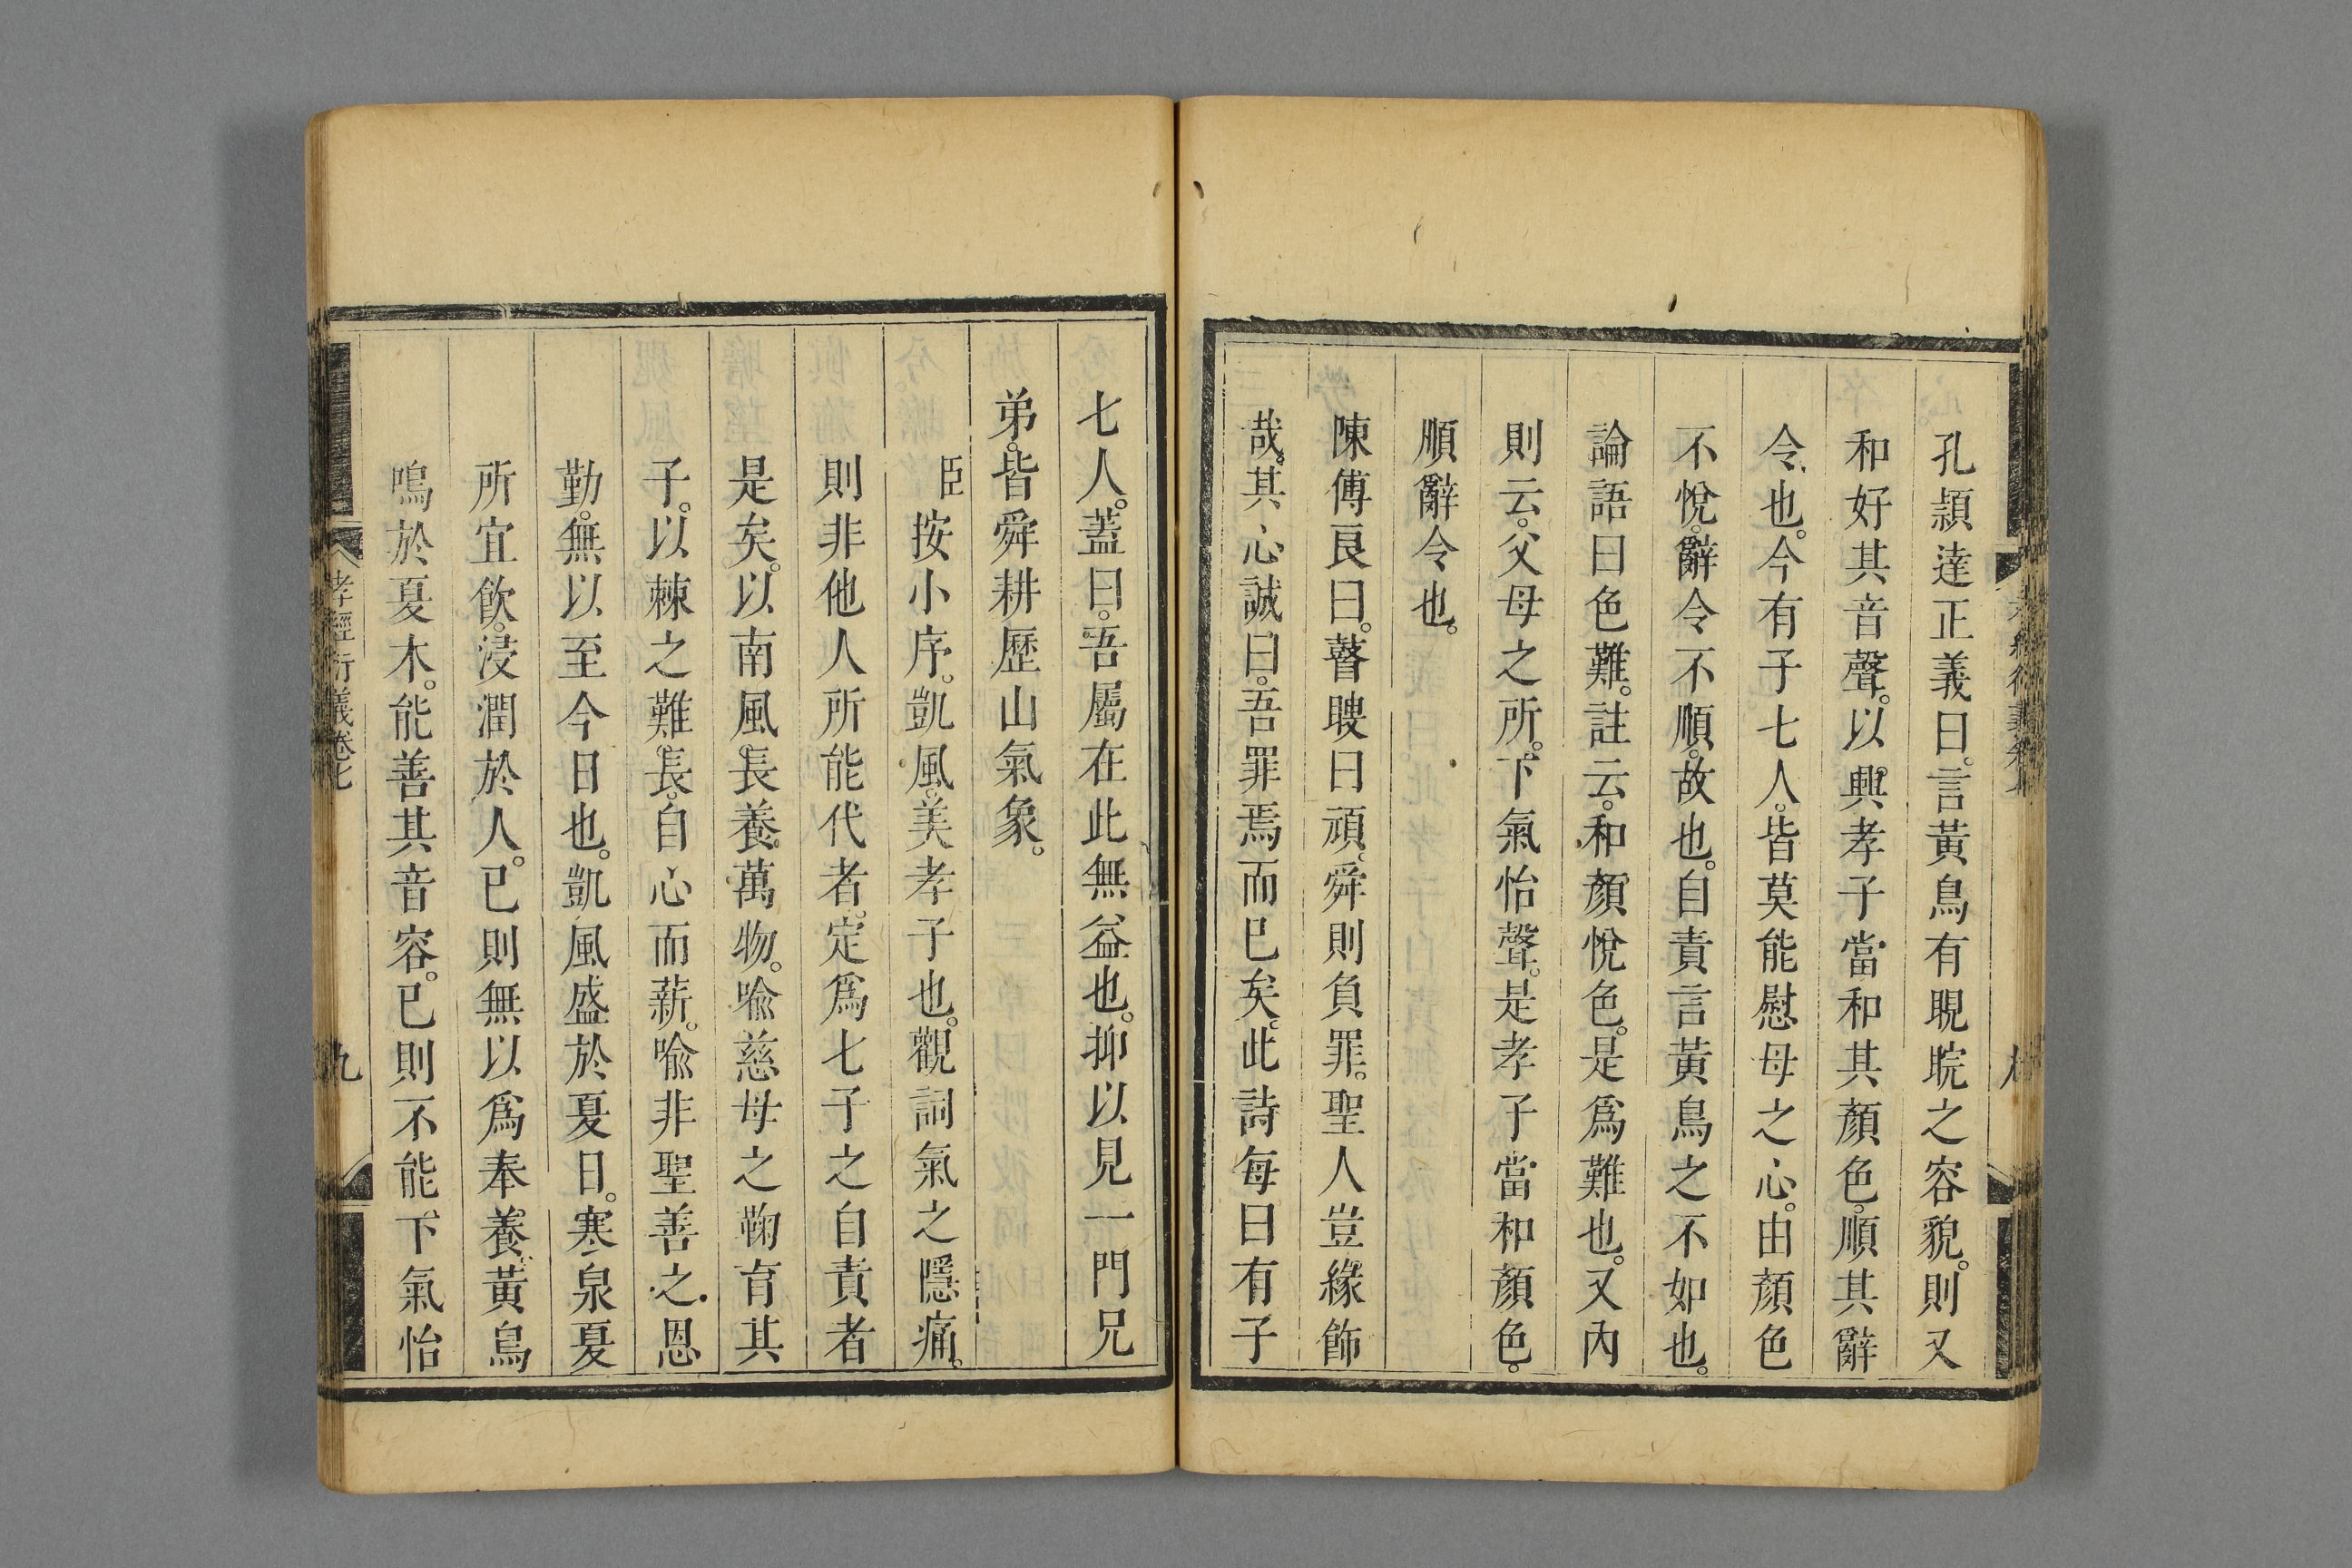 孔頴達正義曰。言黃鳥有睍睆之容貌。則又
和好其音聲。以興孝子當和其顏色。順其辭
令也。今有子七人。皆莫能慰母之心。由顏色
不悅。辭令不順。故也。自責言黃鳥之不如也。
論語曰色難。註云。和顏悅色。是爲難也。又內
則云。父母之所。下氣怡聲。是孝子當和顏色。
順辭令也。
陳傅良曰。瞽瞍曰頑。舜則負罪。聖人豈緣飾
哉。其心誠曰。吾罪焉而巳矣。此詩每曰有子
七人。蓋曰。吾屬在此無益也。抑以見一門兄
弟。皆舜耕歷山氣象。
臣按小序。凱風。美孝子也。觀詞氣之隱痛。
則非他人所能代者。定爲七子之自責者
是矣。以南風長養。萬物。喩慈母之鞠育其
子。以棘之難長。自心而薪。喩非聖善之恩
勤。無以至今日也。凱風盛於夏日。寒泉夏
所宜飲。浸潤於人。已則無以爲奉養。黃鳥
鳴於夏木。能善其音容。已則不能下氣怡
孝經衍義卷七
九